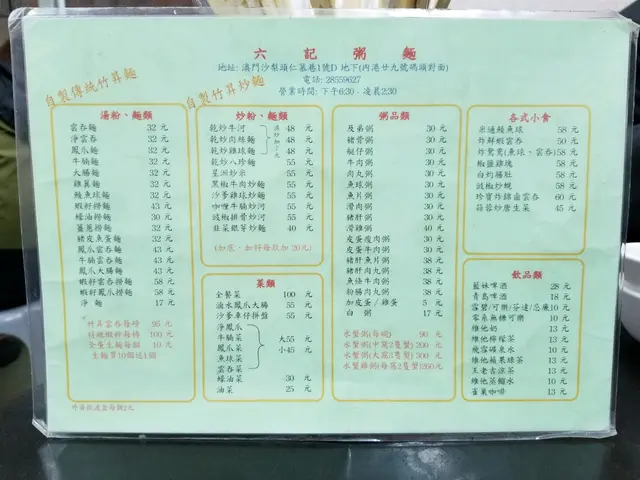 六記粥麵
地址: 澳門沙梨頭仁慕巷1號D 地下(內港廿九號碼頭對面)
電話: 28559627
營業時間: 下午6:30 - 凌晨2:30
自製傳統竹昇麵
自製竹昇炒麵
湯粉、麵類
雲吞麵 32 元
淨雲吞 32 元
鳳爪麵 32 元
牛腩麵 32 元
大腸麵 32 元
雞翼麵 32 元
鯪魚球麵 32 元
蝦籽撈麵 43 元
蠔油撈麵 30 元
薑蔥撈麵 32 元
豬皮魚蛋麵 32 元
鳳爪雲吞麵 44 元
牛腩雲吞麵 44 元
鳳爪大腸麵 44 元
蝦籽雲吞撈麵 58 元
蝦籽鳳爪撈麵 58 元
淨麵 17 元
竹昇雲吞每磅 95 元
特級蝦籽每樽 100 元
全蛋生麵每個 10 元
生麵買10個送1個
外賣飯盒每個2元
炒粉、麵類
乾炒牛河 48 元
乾炒肉絲麵 48 元
乾炒雞球麵 48 元
乾炒八珍麵 55 元
星洲炒米 55 元
黑椒牛肉炒麵 55 元
沙爹雞球炒麵 55 元
咖喱牛腩炒河 55 元
豉椒排骨炒河 55 元
韭菜銀芽炒麵 40 元
(如底,如籽每款加 20元)
菜類
全餐菜 100 元
滷水鳳爪大腸 55 元
沙爹車仔拼盤 55 元
淨鳳爪
牛腩菜
鳳爪菜
魚球菜
雲吞菜
大55 元
小45 元
蠔油菜 30 元
油菜 25 元
粥品類
及弟粥 30 元
豬骨粥 30 元
艇仔粥 30 元
牛肉粥 30 元
肉丸粥 30 元
魚球粥 30 元
魚片粥 30 元
滑肉粥 30 元
豬肝粥 30 元
滑雞粥 40 元
皮蛋瘦肉粥 30 元
皮蛋牛肉粥 30 元
豬肝魚片粥 35 元
豬肝肉丸粥 35 元
魚條牛肉粥 35 元
粉腸肉丸粥 35 元
加皮蛋/雞蛋 5 元
白粥 17 元
水蟹粥(每碗) 90 元
水蟹粥(中窩2隻蟹) 200 元
水蟹粥(大窩3隻蟹) 300 元
水蟹雞粥(每窩2隻蟹)1260元
各式小食
米通鯪魚球 58 元
炸鮮蝦雲吞 50 元
炸鴛鴦(魚球、雲吞) 58 元
椒鹽雞塊 58 元
白灼豬肚 58 元
豉椒炒蜆 58 元
珍寶炸錦鹵雲吞 60 元
蒜蓉炒唐生菜 45 元
飲品類
藍妹啤酒 28 元
青島啤酒 18 元
雪碧/可樂/芬達/忌廉 10 元
零系無糖可樂 10 元
維他奶 13 元
維他檸檬茶 13 元
飛雪礦泉水 10 元
維他蘋果綠茶 13 元
王老吉涼茶 13 元
維他蒸餾水 10 元
雀巢咖啡 13 元